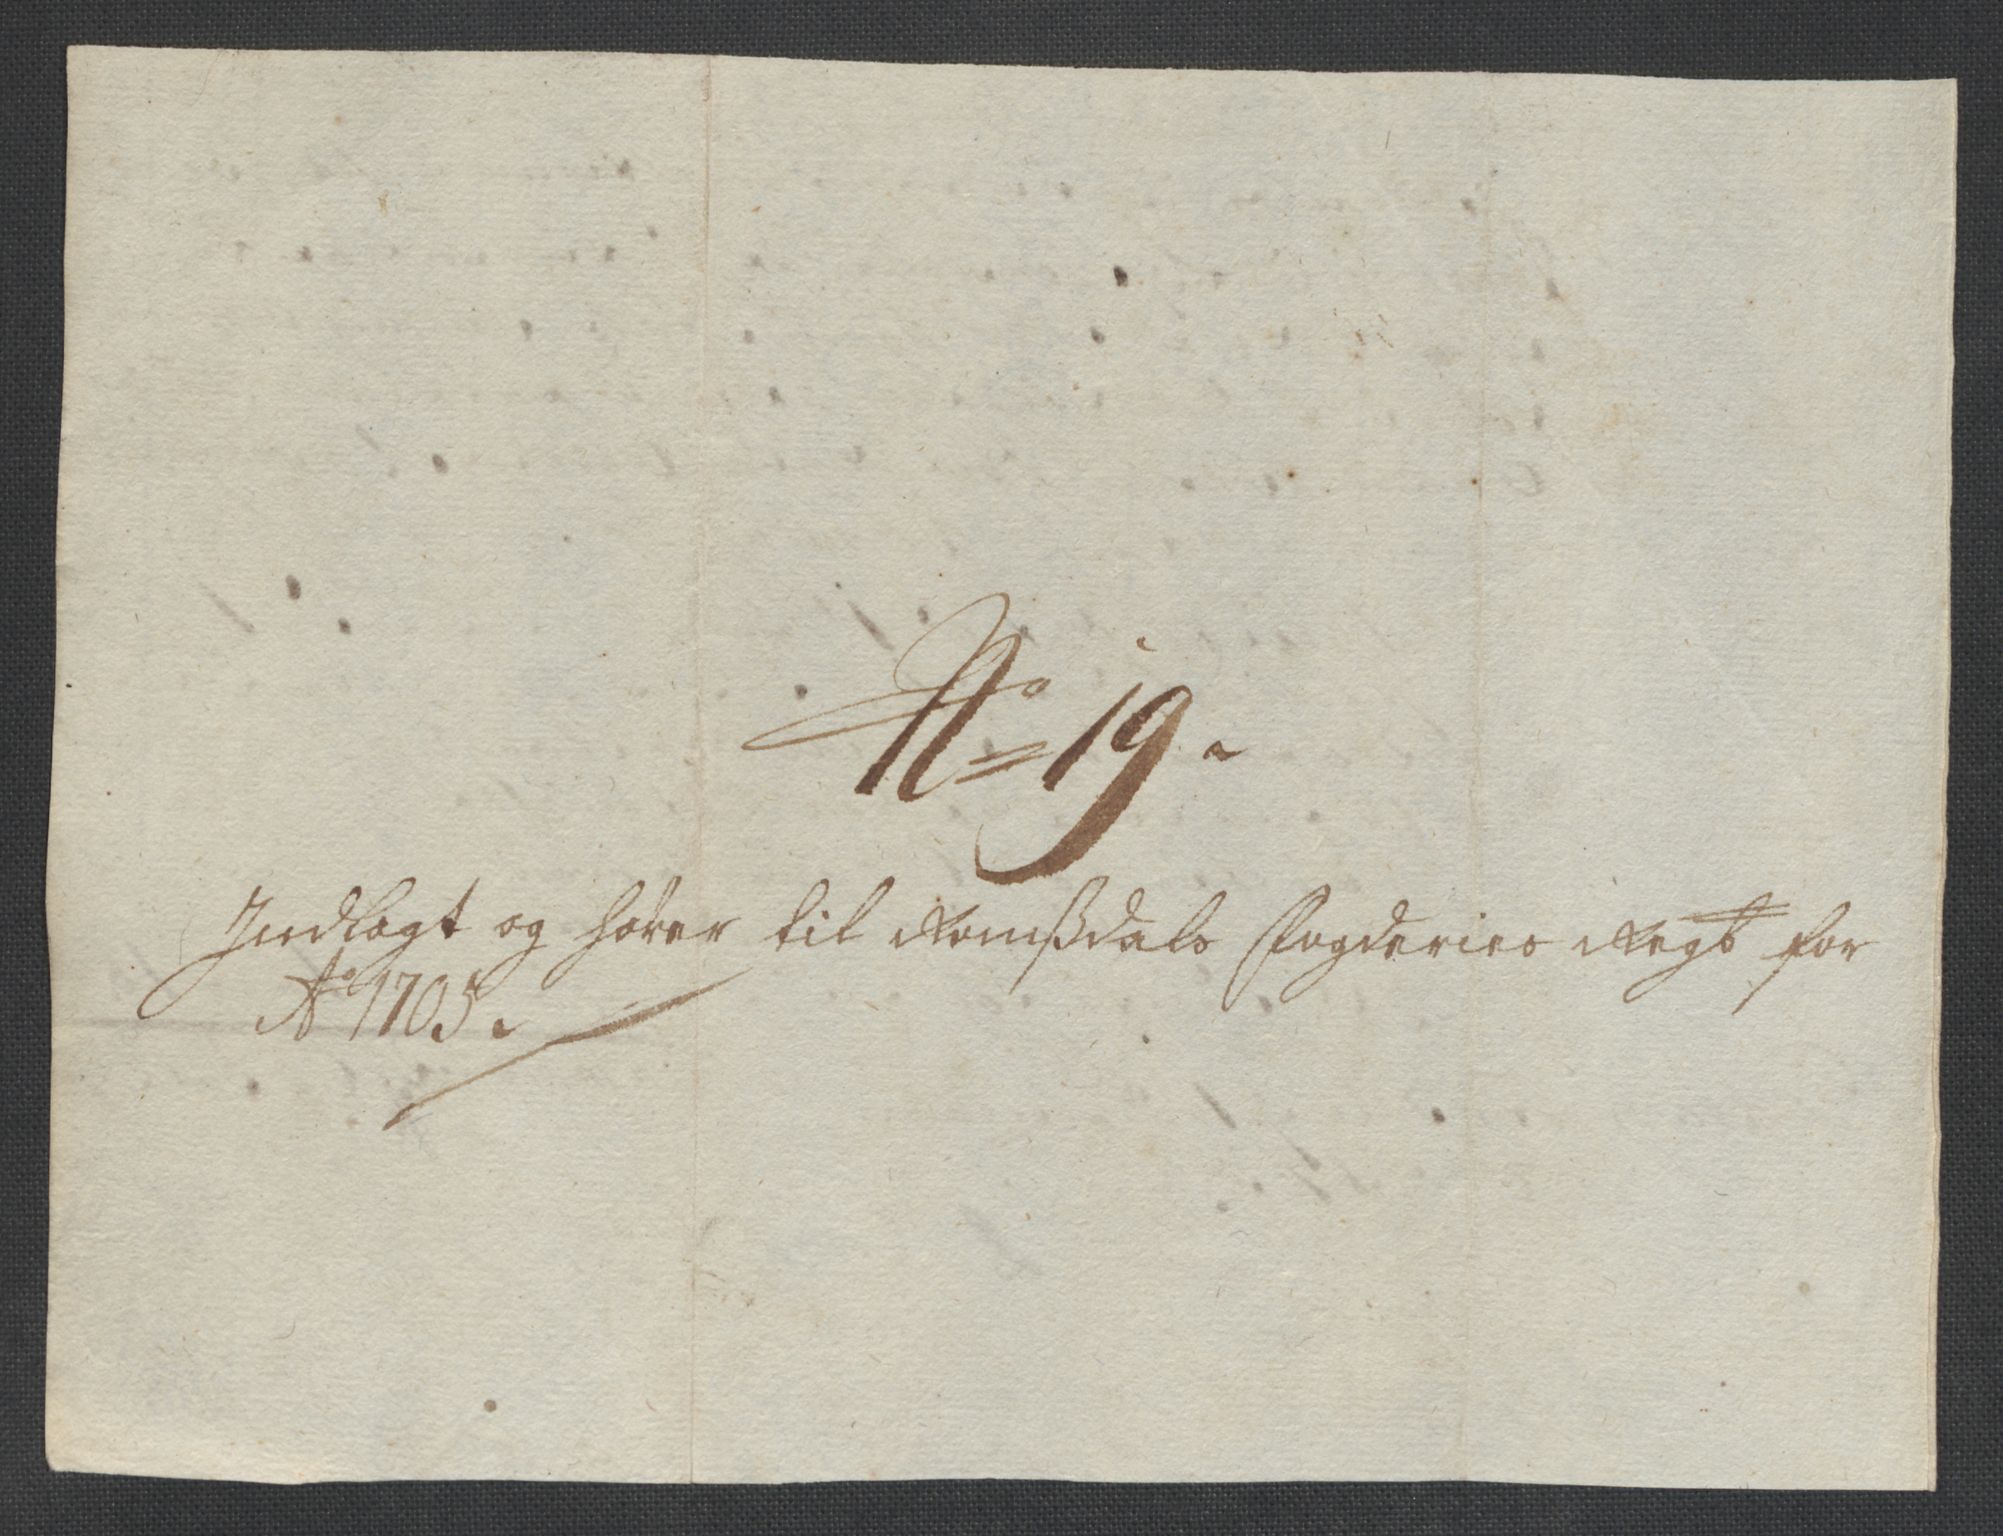 No 19.
Indlagt og hører til Romsdals Fogderies Regsb for
Ao 1705.